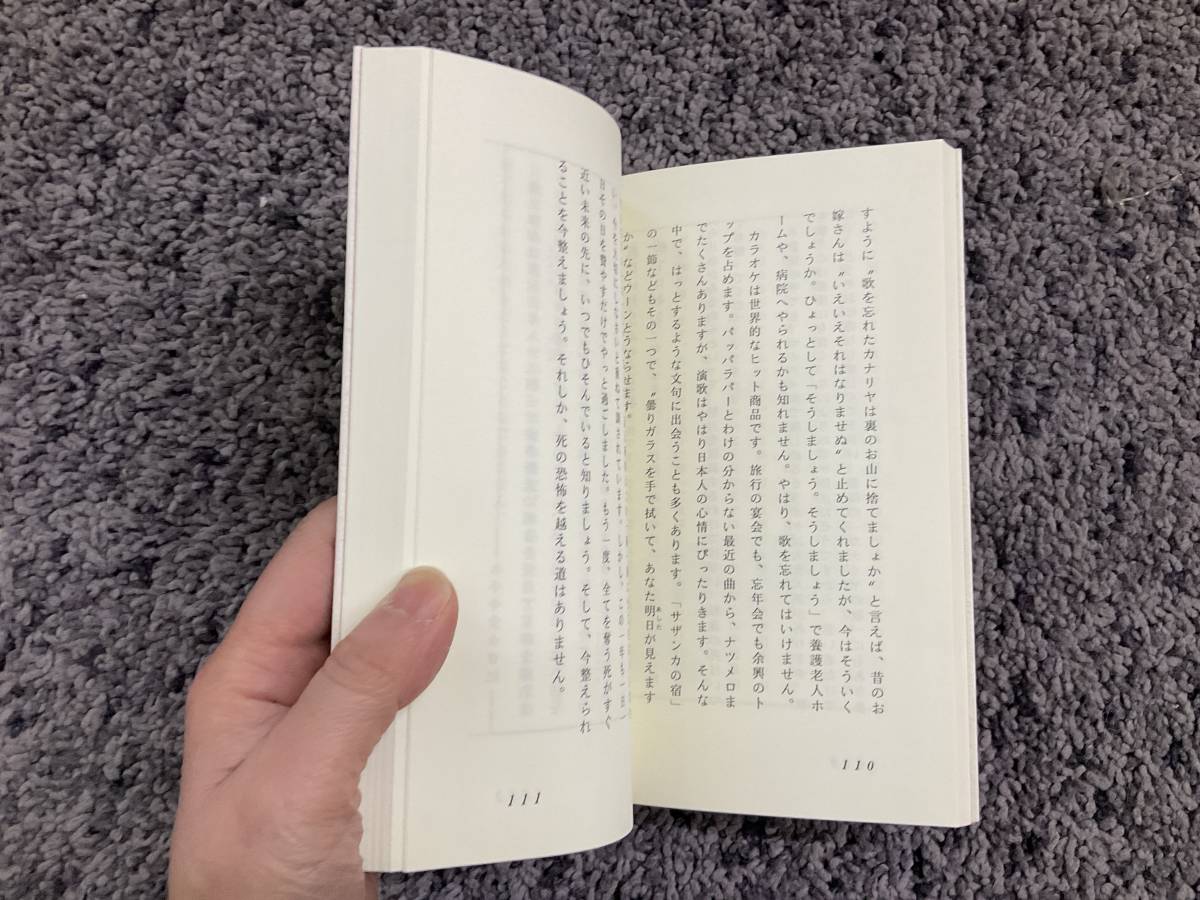 すように〝歌を忘れたカナリヤは裏のお山に捨てましょか〟と言えば、昔のお
嫁さんは〝いえいえそれはなりませぬ〟と止めてくれましたが、今はそういく
でしょうか。ひょっとして「そうしましょう。そうしましょう」で養護老人ホ
ームや、病院へやられるかも知れません。やはり、歌を忘れてはいけません。
カラオケは世界的なヒット商品です。旅行の宴会でも、忘年会でも余興のト
ップを占めます。パッパラパーとわけの分からない最近の曲から、ナツメロま
でたくさんありますが、演歌はやはり日本人の心情にぴったりきます。そんな
中で、はっとするような文句に出会うことも多くあります。「サザンカの宿」
の一節などもその一つで、〝曇りガラスを手で拭いて、あなた明日が見えます
あした
か〟などウーンとうならせます。
110
しかし、この一年も一日一
日その日を費やすだけでやっと過ごしました。もう一度、全てを奪う死がすぐ
近い未来の先に、いつでもひそんでいると知りましょう。そして、今整えられ
ることを今整えましょう。それしか、死の恐怖を越える道はありません。
111